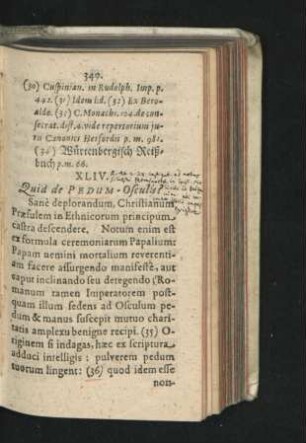 340.
(30) Cuspinian. in Rudolph. Imp. p.
442. (31) Idem ibd. (32) Ex Bero-
aldo. (33) C. Monachus 104. de con-
secrat. dist. 4. vide repertorium ju-
ris Canonici Bertardi p. m. 981.
(34) Würtenbergisch Reiß-
buch p. m. 66.
XLIV.
Quid de PEDUM-Osculis?
Sanè deplorandum, Christianum
Præsulem in Ethnicorum principum
castra descendere. Notum enim est
ex formula ceremoniarum Papalium:
Papam nemini mortalium reverenti-
am facere assurgendo manifestè, aut
caput inclinando seu detegendo (Ro-
manum tamen Imperatorem post-
quam illum sedens ad Osculum pe-
dum & manus suscepit mutuo chari-
tatis amplexu benigne recipi. (35) O-
riginem si indagas, hæc ex scriptura
adduci intelligis: pulverem pedum
tuorum lingent: (36) quod idem esse
non-